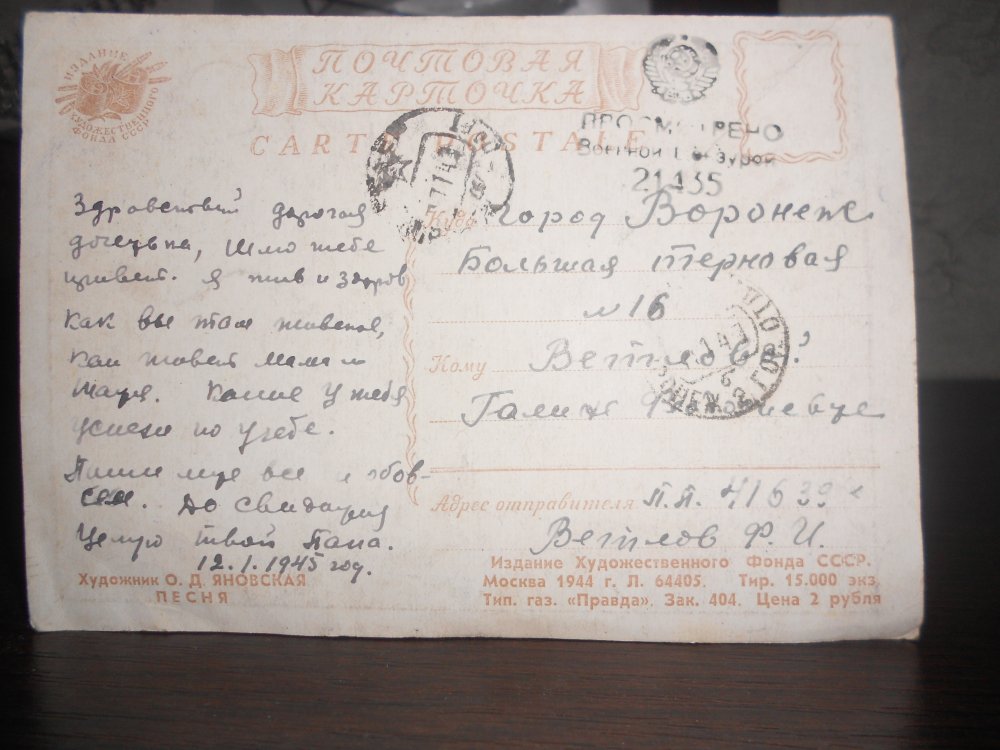 ИЗДАНИЕ
ХУДОЖЕСТВЕННОГО
ФОНДА СССР
ПОЧТОВАЯ
КАРТОЧКА
CARTE POSTALE
ПРОСМОТРЕНО
Военной Цензурой
21435
Здравствуй дорогая
доченька, Шлю тебе
привет. Я жив и здоров
Как вы там живете,
как живет мама и
Какие у тебя
успехи по учебе.
Пиши мне все и обов-
сем. До Свидания
Целую твой Папа.
12.1.1945 год.
Куда Город Воронеж
Большая терновая
№ 16
Кому Ветловой
Галине
Адрес отправителя П.П. 41639
Ветлов Ф. И.
Художник О. Д. ЯНОВСКАЯ
ПЕСНЯ
Издание Художественного Фонда СССР.
Москва 1944 г. Л. 64405. Тир. 15.000 экз.
Тип. газ. «Правда». Зак. 404. Цена 2 рубля